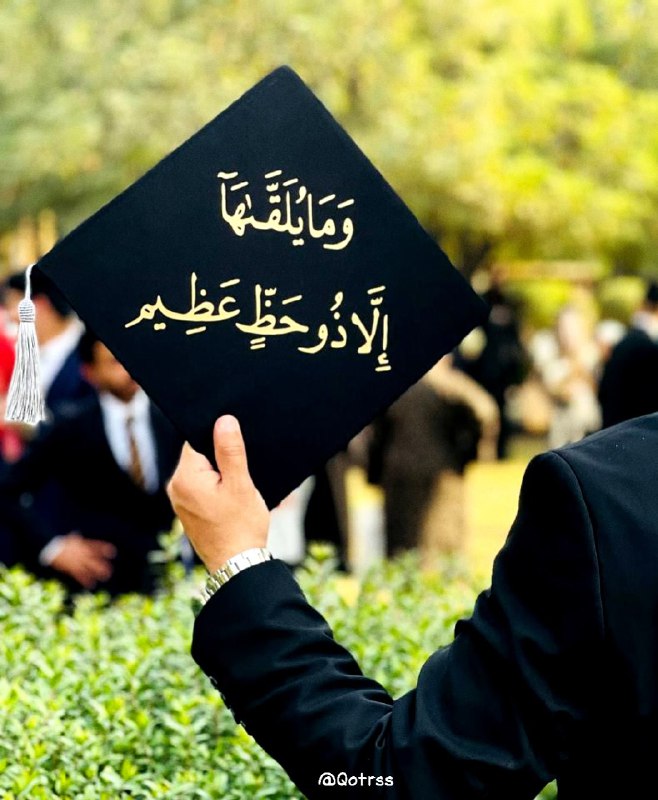 وَمَا يُلَقَّىٰهَآ
إِلَّا ذُو حَظٍّ عَظِيمٍ
@Qotrss